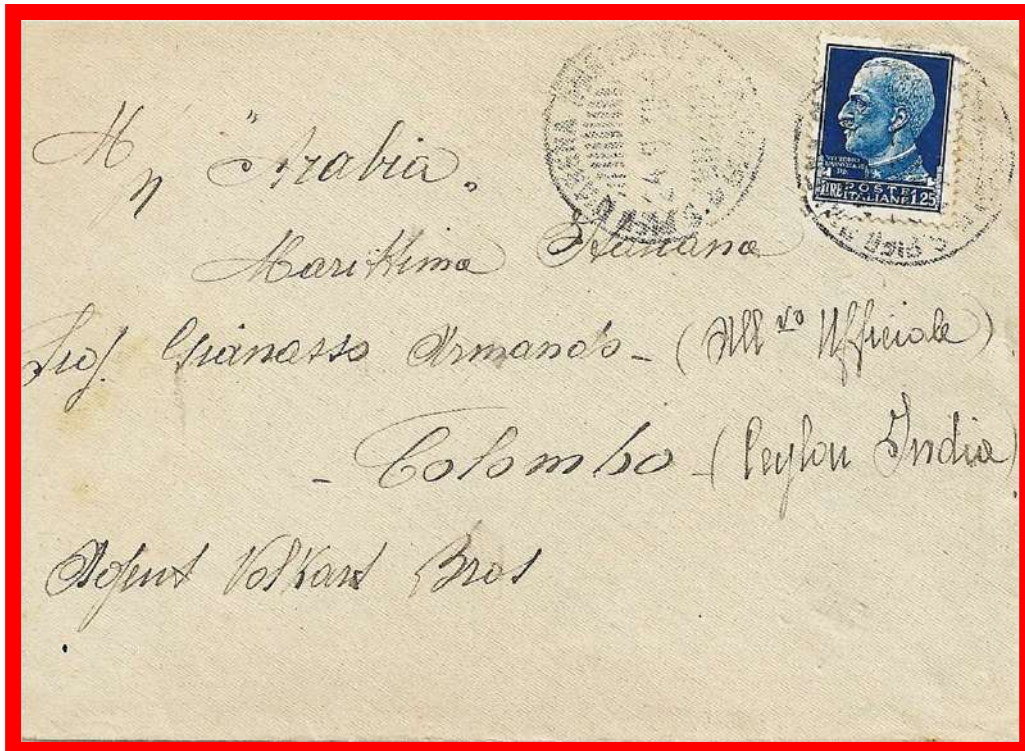 M/n "Arabia"
Marittima Italiana
Sig. Gianasso Armando - (All.vo Ufficiale)
- Colombo - (Ceylon India)
Agent Volkart Bros
VITTORIO
EMANUELE
LIRE POSTE 1,25
ITALIANE